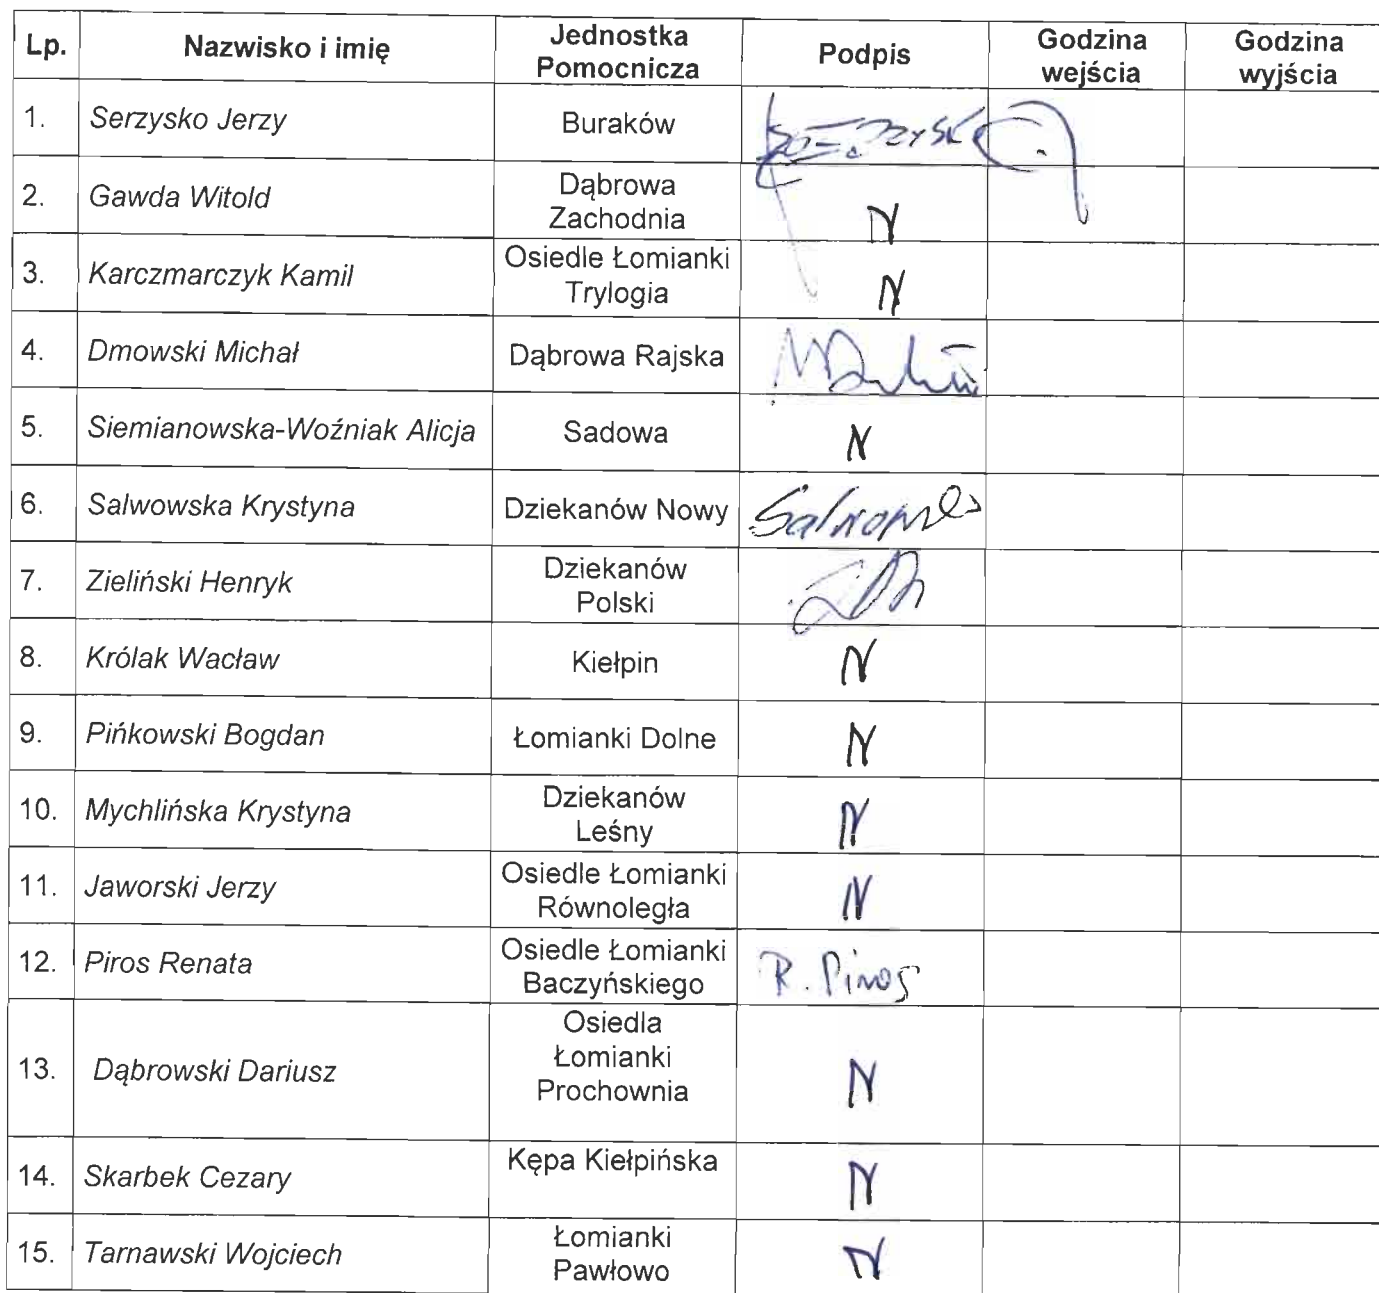 Lp. Nazwisko i imię Jednostka Pomocnicza Podpis Godzina wejścia Godzina wyjścia
1. Serzysko Jerzy Buraków
2. Gawda Witold Dąbrowa Zachodnia N
3. Karczmarczyk Kamil Osiedle Łomianki Trylogia N
4. Dmowski Michał Dąbrowa Rajska
5. Siemianowska-Woźniak Alicja Sadowa N
6. Salwowska Krystyna Dziekanów Nowy
7. Zieliński Henryk Dziekanów Polski
8. Królak Wacław Kiełpin N
9. Pińkowski Bogdan Łomianki Dolne N
10. Mychlińska Krystyna Dziekanów Leśny N
11. Jaworski Jerzy Osiedle Łomianki Równoległa N
12. Piros Renata Osiedle Łomianki Baczyńskiego R. Piros
13. Dąbrowski Dariusz Osiedla Łomianki Prochownia N
14. Skarbek Cezary Kępa Kiełpińska N
15. Tarnawski Wojciech Łomianki Pawłowo N